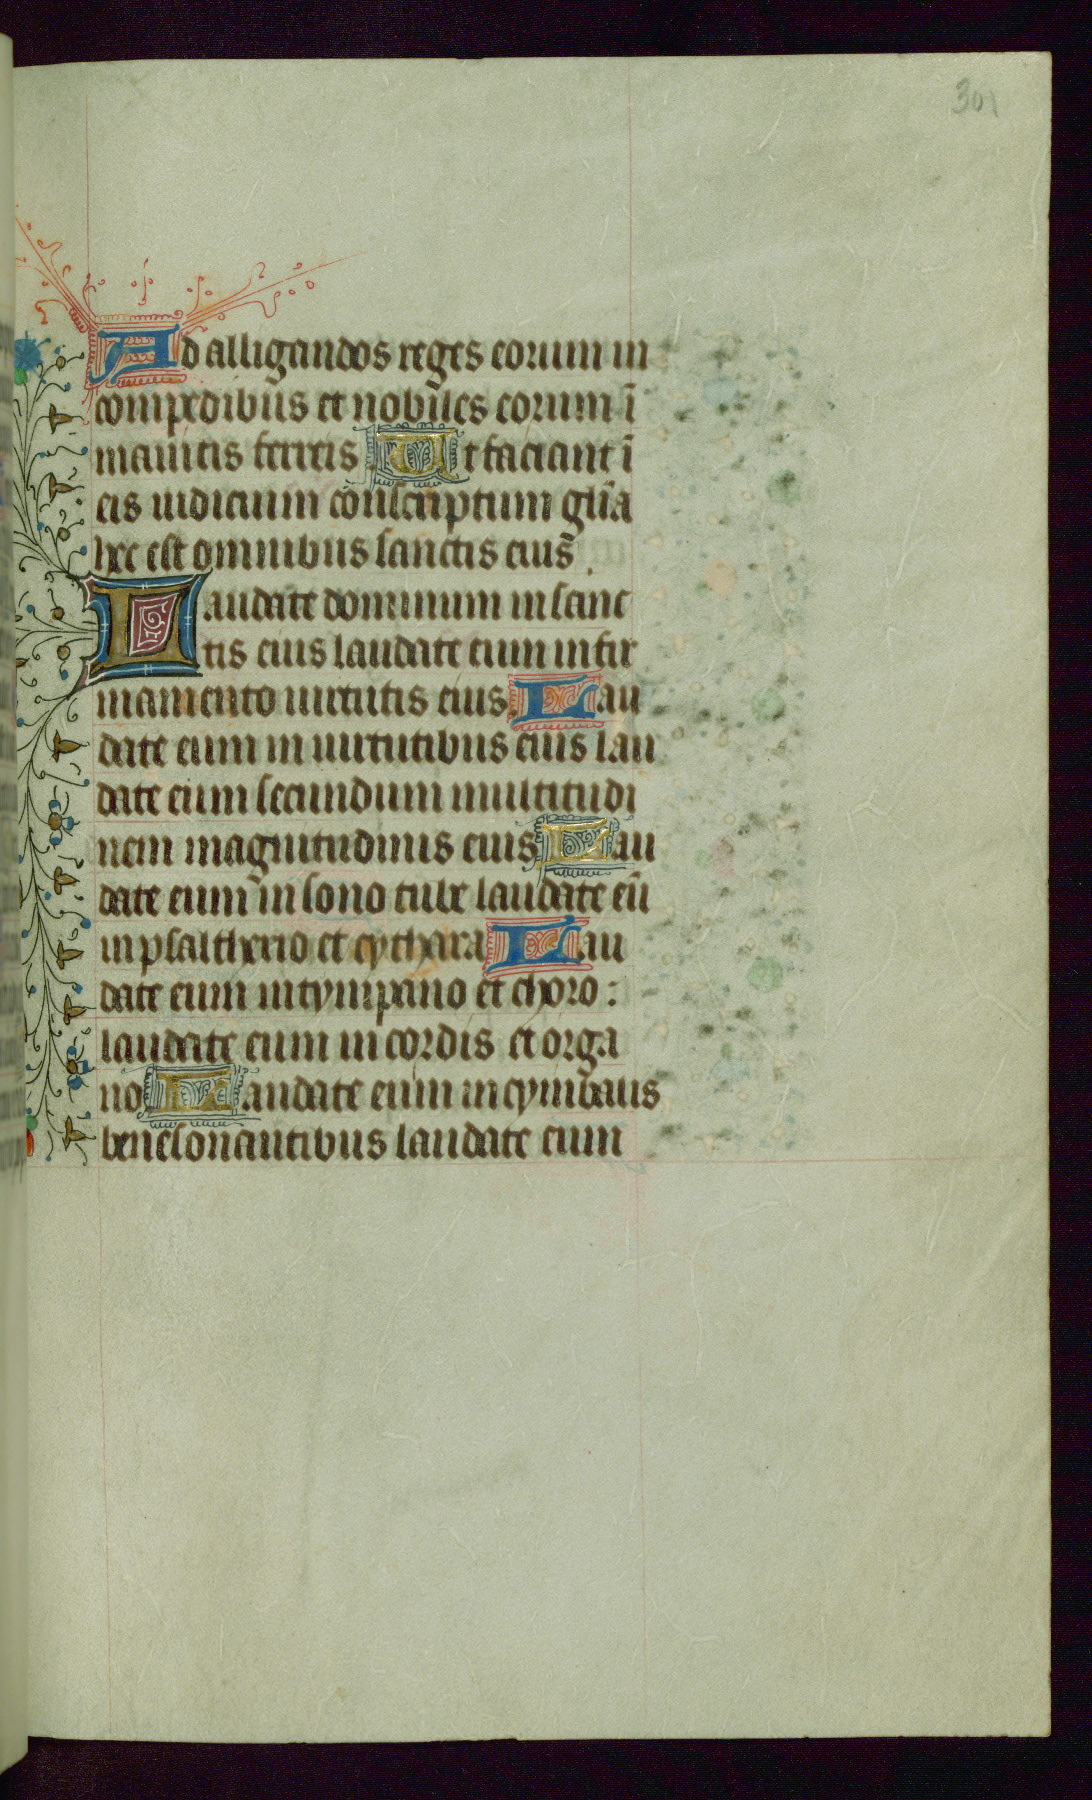 301
Ad alligandos reges eorum in
compedibus et nobiles eorum ī
manicis ferreis Ut faciant ī
eis iudicium conscriptum gl̄ia
hec est omnibus sanctis eius
Laudate dominum in sanc
tis eius laudate eum in fir
mamento uirtutis eius. Lau
date eum in uirtutibus eius lau
date eum secundum multitudi
nem magnitudinis eius Lau
date eum in sono tube laudate eū
in psalterio et cythara Lau
date eum in tympano et choro :
laudate eum in cordis et orga
no Laudate eum in cymbalis
benesonantibus laudate eum